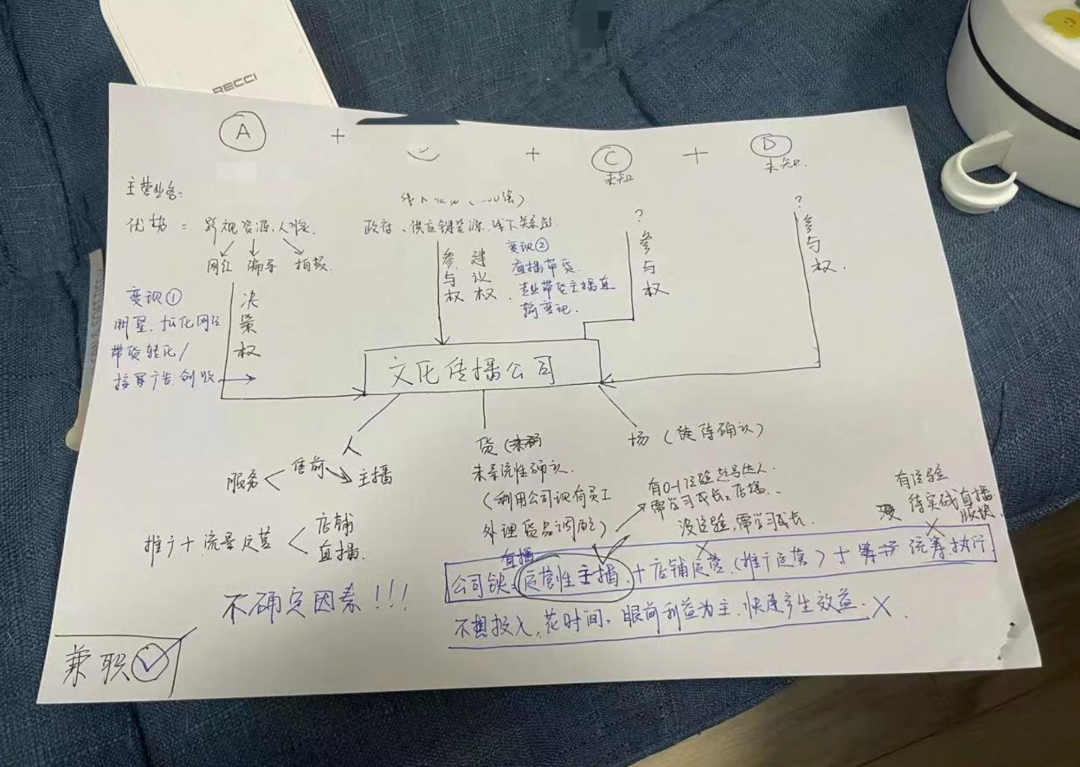 RECCI
A + + C + D
未知 未知
主营业务:
优势 = 影视资源、人脉.
政府、供应链资源、线下关系
? ?
网红 编导 拍摄
参与权 建议权
变现②
直播带货
专业带货主播直
输变现.
参与权
参与权.
变现①
明星、孵化网红
带货转化/
接广告创收
决策权
文化传播公司
人 货 场(待确认)
服务 < 售前 主播
未系统性确认.
(利用公司现有员工
外理货品调配)
有0-1经验起号达人
需学习成长.店播.
没经验,需学习成长.
有经验
待实战直播
推广+流量运营 < 店铺
直播
直播
公司缺 运营性主播 + 店铺运营(推广运营)+ 统筹执行
不想投入,花时间,眼前利益为主.快速产生效益. X.
不确定因素!!!
兼职